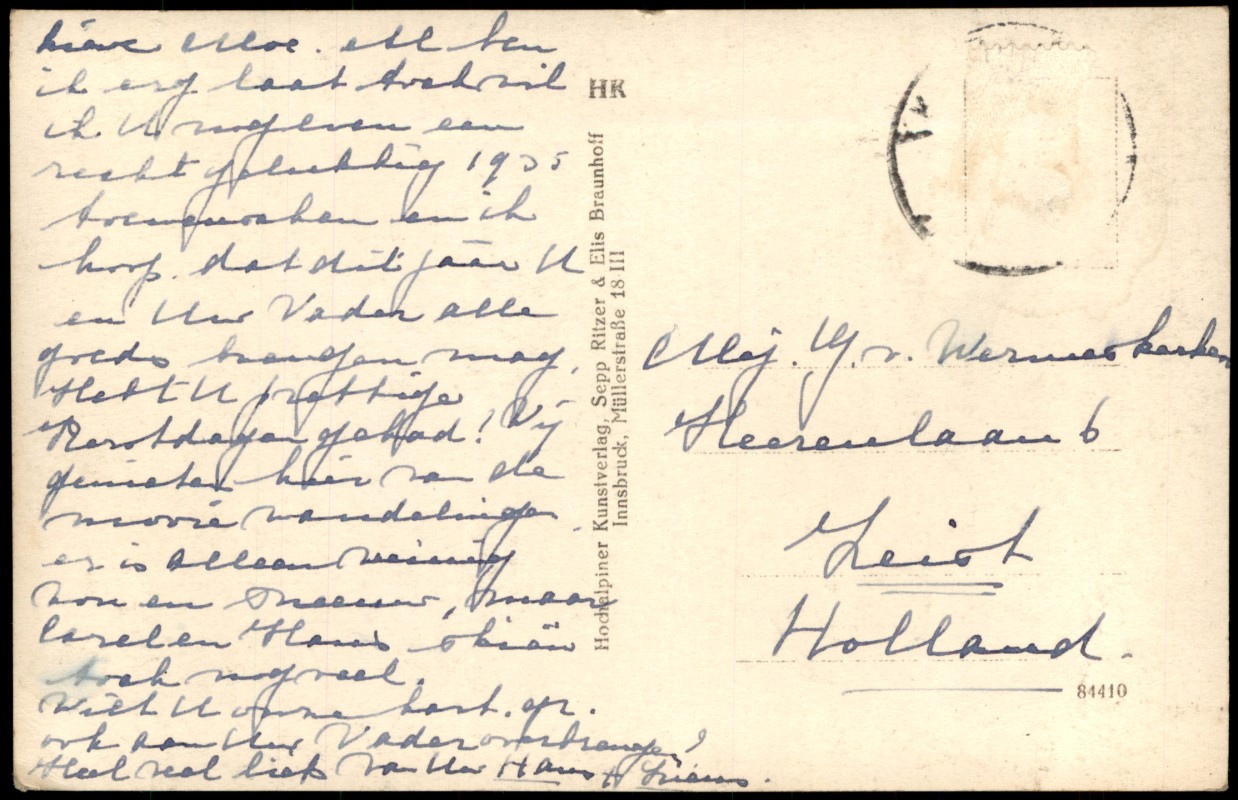 Lieve Moe. Al ben
ik erg laat toch wil
ik U nog even een
recht gelukkig 1935
toewenschen en ik
hoop dat dit jaar U
en Uw Vader alle
goeds brengen mag,
Hebt U prettige
Kerstdagen gehad? Wij
genieten hier van de
mooie wandelingen
er is alleen weinig
zon en sneeuw, maar
Carel en Hans skiën
toch nog veel.
Wilt U onze hart. gr.
ook aan Uw Vader overbrengen?
Heel veel liefs van Uw Hans
HR
Hochalpiner Kunstverlag, Sepp Ritzer & Elis Braunhoff
Innsbruck, Müllerstraße 18 III
Mej. v. Wermeskerken
Heerenlaan 6
Zeist
Holland.
84410